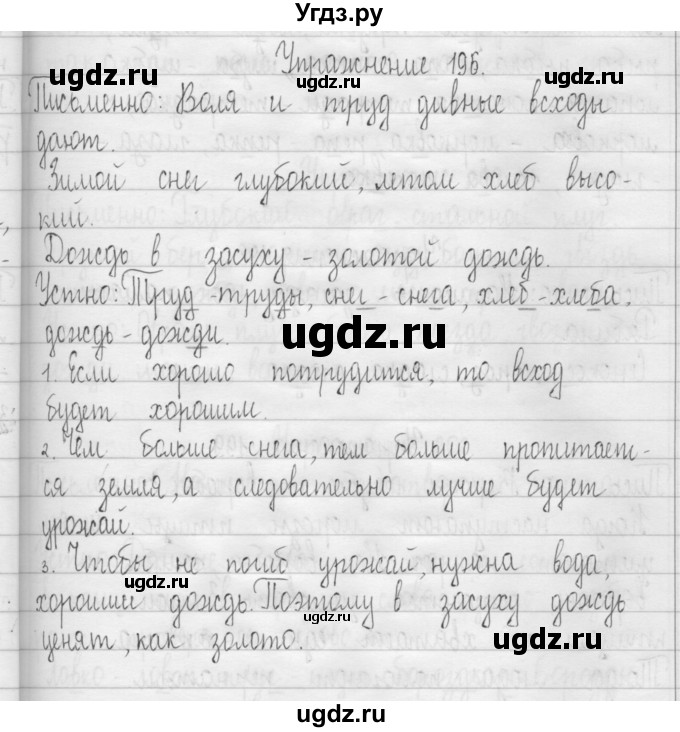 Угдз.ру
Упражнение 196.
ugdz.ru ugdz.ru
Письменно: Воля и труд дивные всходы
дают.
Зимой снег глубокий, летом хлеб высо-
кий.
Дождь в засуху - золотой дождь.
Устно: Труд - труды, снег - снега, хлеб - хлеба,
дождь - дожди.
ugdz.ru
1. Если хорошо потрудится, то всход
будет хорошим.
2. Чем больше снега, тем больше пропитает-
ся земля, а следовательно лучше будет
урожай.
ugdz.ru ugdz.ru
3. Чтобы не погиб урожай, нужна вода,
хороший дождь. Поэтому в засуху дождь
ценят, как золото.
ugdz.ru
ugdz.ru
ugdz.ru